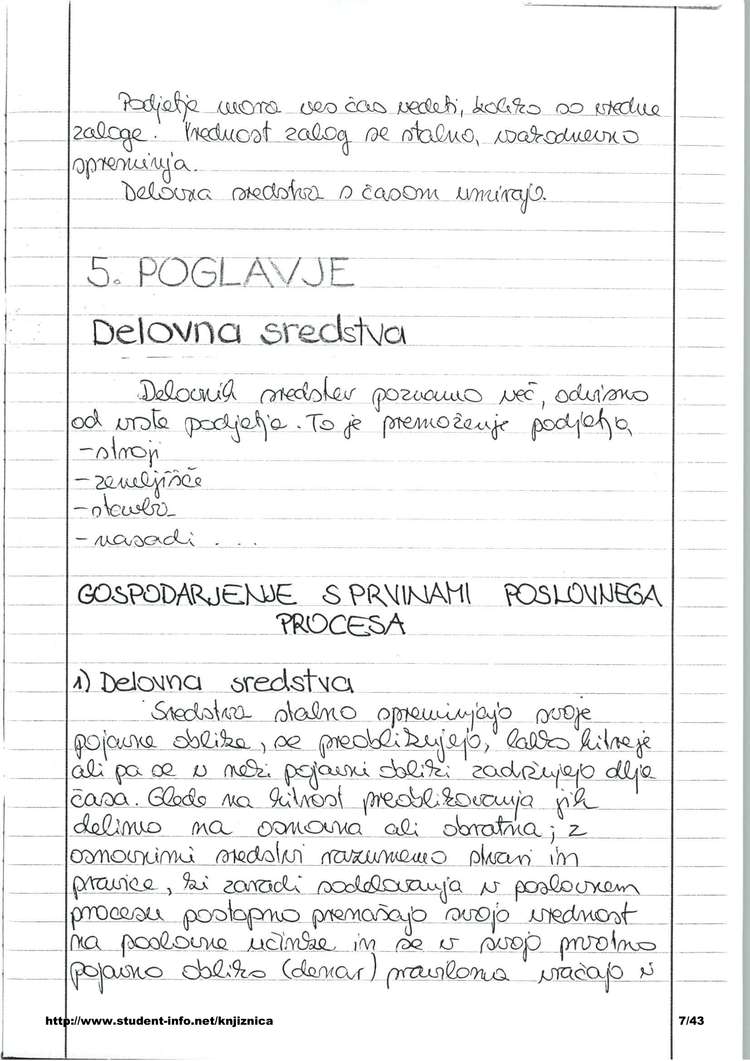 Podjetje mora ves čas vedeti, koliko so vredne
zaloge. Vrednost zalog se stalno, vsakodnevno
spreminja.
Delovna sredstva s časom umirajo.
5. POGLAVJE
Delovna sredstva
Delovnih sredstev poznamo več, odvisno
od vrste podjetja. To je premoženje podjetja
- stroji
- zemeljišče
- stavba
- nasadi ...
GOSPODARJENJE S PRVINAMI POSLOVNEGA
PROCESA
1) Delovna sredstva
Sredstva stalno spreminjajo svoje
pojavne oblike, se preoblikujejo, lahko hitreje
ali pa se v neki pojavni obliki zadržujejo dlje
časa. Glede na hitrost preoblikovanja jih
delimo na osnovna ali obratna; z
osnovnimi sredstvi razumemo stvari in
pravice, ki zaradi sodelovanja v poslovnem
procesu postopno prenašajo svojo vrednost
na poslovne učinke in se v svojo prvotno
pojavno obliko (denar) praviloma vračajo v
http://www.student-info.net/knjiznica
7/43